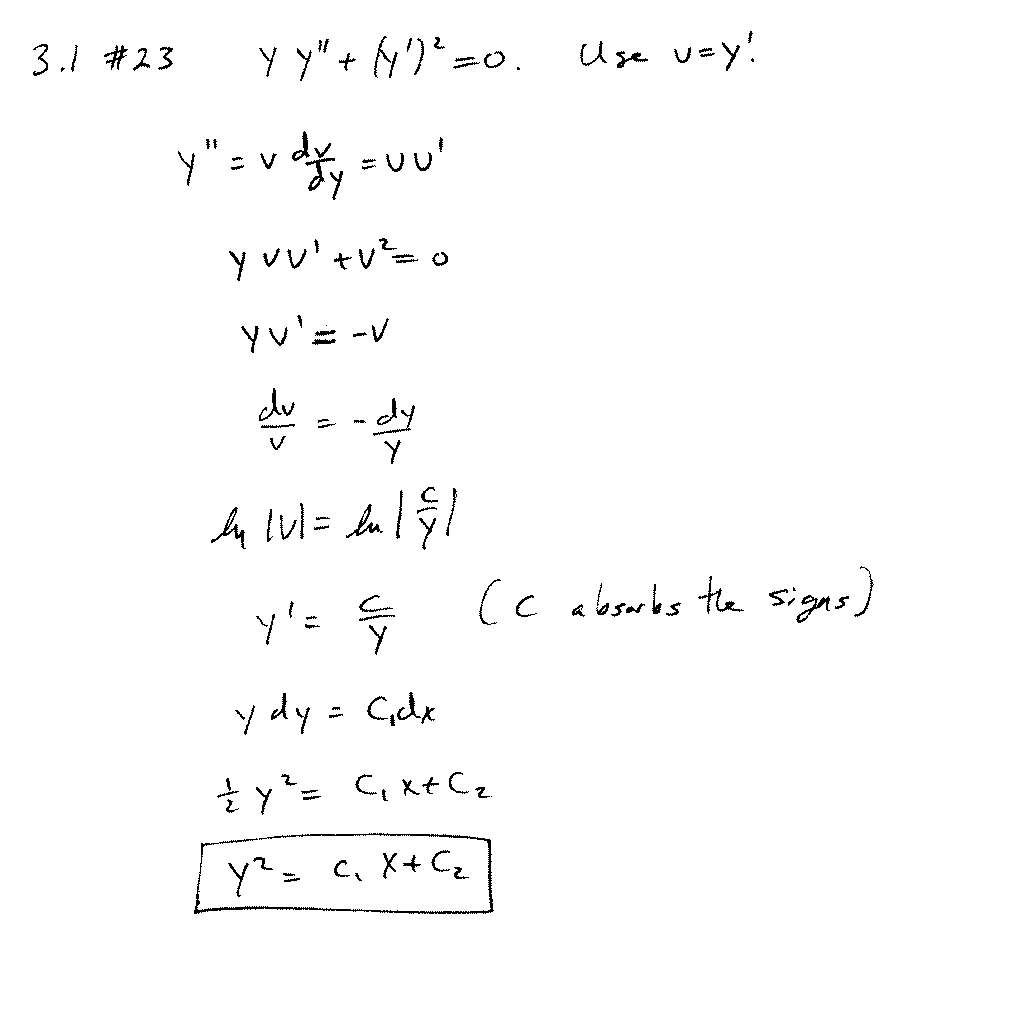 3.1 #23 y y" + (y')² = 0. Use v = y'.
y" = v dv/dy = vv'
y vv' + v² = 0
yv' = -v
dv/v = - dy/y
ln |v| = ln |c/y|
y' = c/y (C absorbs the signs)
y dy = C₁dx
½ y² = C₁ x + C₂
y² = C₁ x + C₂